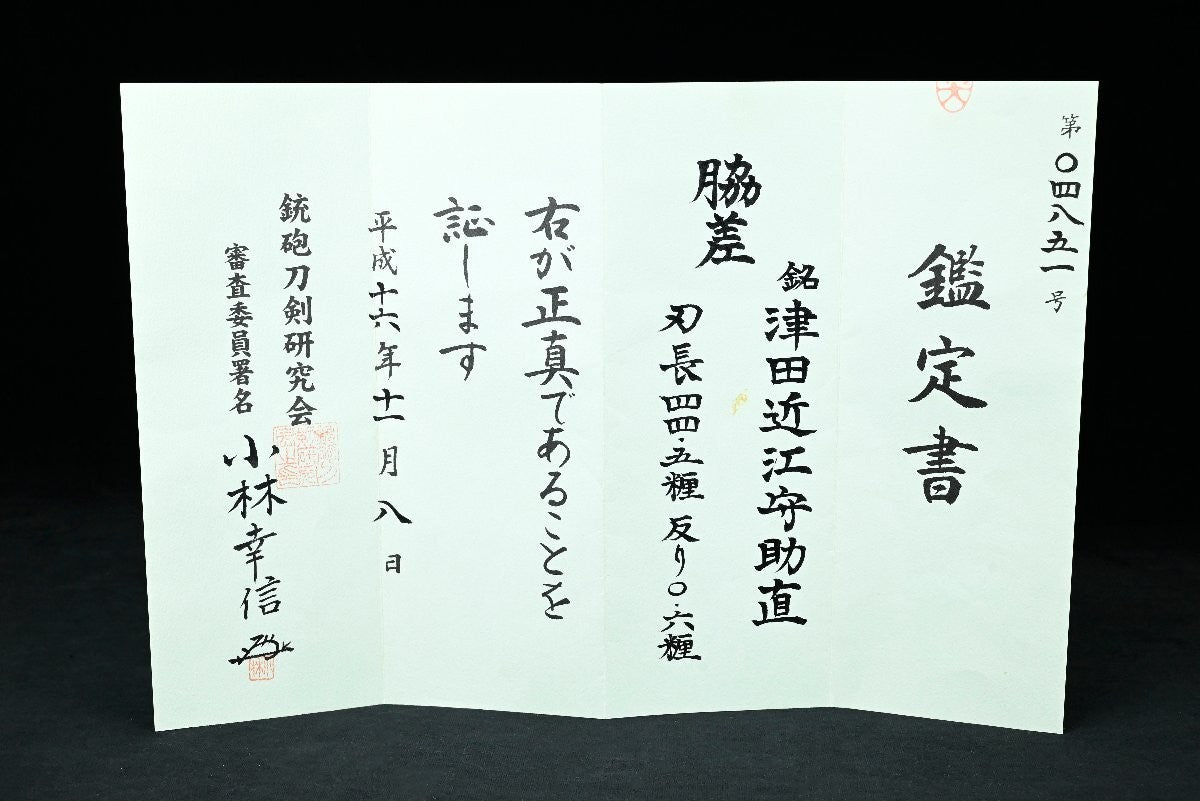 第〇四八五一号
鑑定書
銘 津田近江守助直
脇差
刃長四四.五糎 反り〇.六糎
右が正真であることを
証します
平成十六年十一月八日
銃砲刀剣研究会
審査委員署名 小林幸信